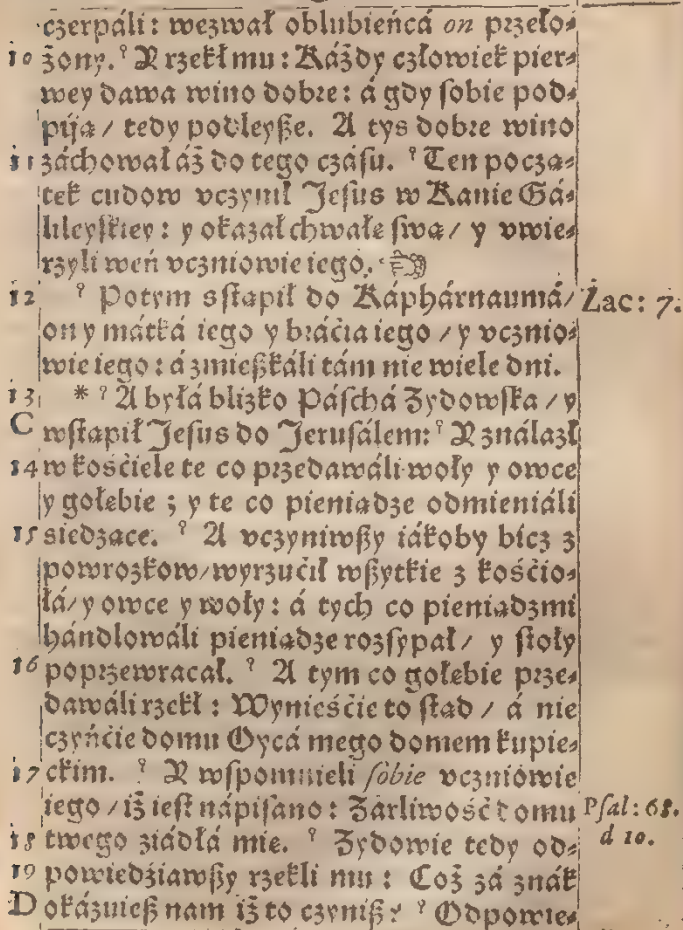 czerpáli: wezwał oblubieńcá on przeło⸗
10 żony. ⁹ Y rzekł mu: Káżdy człowiek pier⸗
wey dawa wino dobre: á gdy ſobie pod⸗
pija / tedy podleyße. A tys dobre wino
11 záchował áż do tego czáſu. ⁹ Ten począ⸗
tek cudow vczynił Jeſus w Kanie Gá⸗
lileyſkiey: y okazał chwałe ſwą / y vwie⸗
rzyli weń vczniowie iego. ☜
12 ⁹ Potym sſtąpił do Káphárnaumá / Żac: 7.
on y mátká iego y bráćia iego / y vcznio⸗
wie iego: á zmießkáli tám nie wiele dni.
13 * ⁹ A byłá blizko Páſchá Żydowſka / y
C wſtąpił Jeſus do Jeruſálem: ⁹ Y ználazł
14 w kośćiele te co przedawáli woły y owce
y gołebie; y te co pieniądze odmieniáli
15 siedzące. ⁹ A vczyniwßy iákoby bicz z
powrozkow / wyrzućił wßytkie z kośćio⸗
łá / y owce y woły: á tych co pieniądzmi
hándlowáli pieniądze rozſypał / y ſtoły
16 poprzewracał. ⁹ A tym co gołebie prze⸗
dawáli rzekł: Wynieśćie to ſtąd / á nie
czyńćie domu Oycá mego domem kupie⸗
17 ckim. ⁹ Y wſpomnieli ſobie vczniowie
iego / iż ieſt nápiſano: Żárliwość domu Pſal: 68.
18 twego ziádłá mie. ⁹ Żydowie tedy od⸗ d 10.
19 powiedźiawßy rzekli mu: Coż zá znák
D okázuieß nam iż to czyniß? ⁹ Odpowie⸗